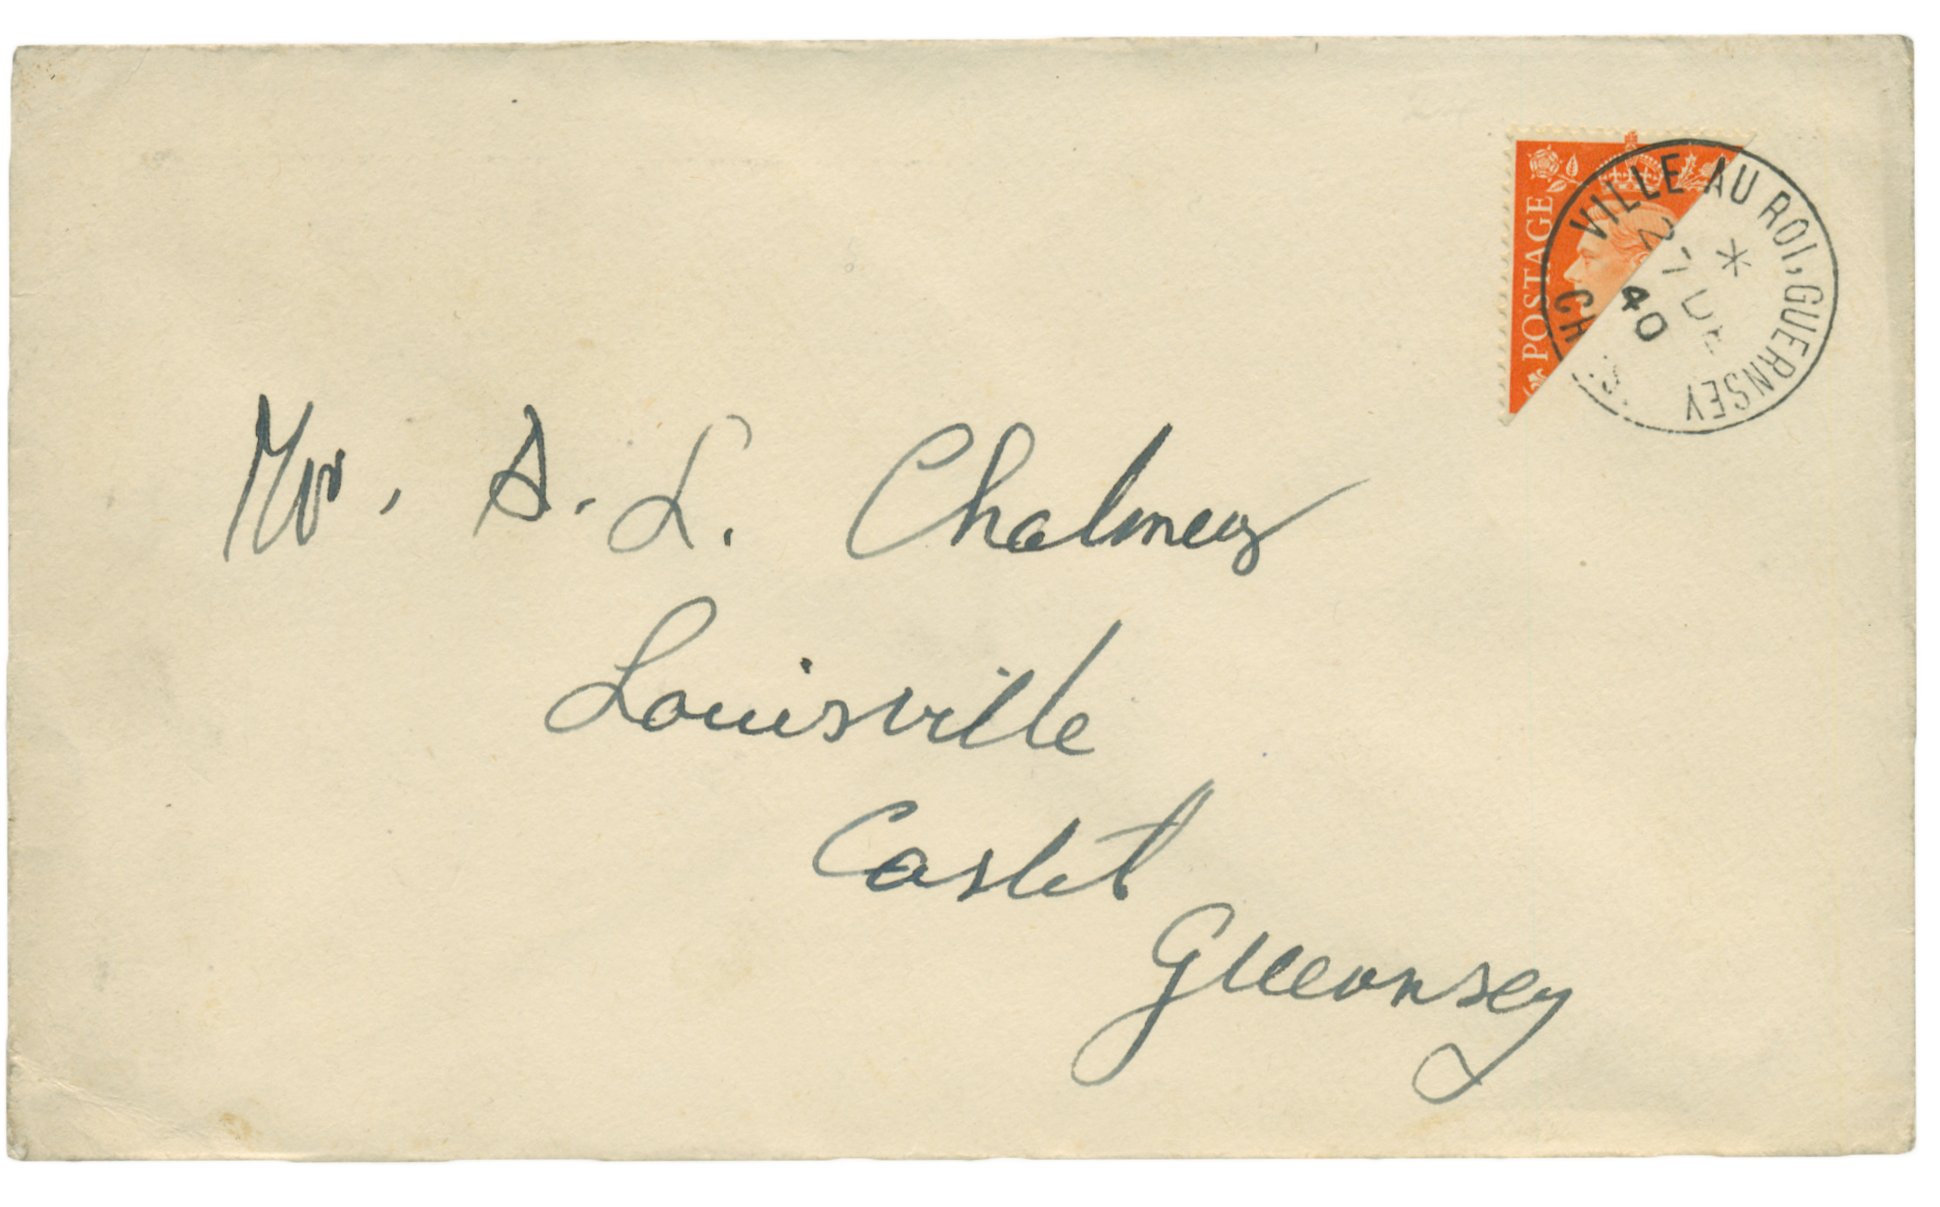 POSTAGE
VILLE AU ROI, GUERNSEY
27 DE
40
Mr. A. L. Chalmers
Louisville
Castel
Guernsey